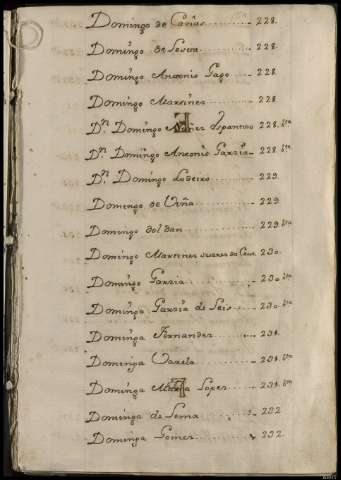 Domingo de Cañas 228.
Domingo de 228.
Domingo Antonio Pago 228.
Domingo Martines 228
Dn. Domingo 228. bta
Dn. Domingo Antonio Garsia 228. bta
Dn. Domingo Lodeiro 229.
Domingo de Viña 229
Domingo Soldan 229. bta
Domingo Martines 230.
Domingo Garsia 230. bta
Domingo Garsia de Seis 230. bta
Dominga Fernandes 231.
Dominga Varela 231. bta
Dominga Lopes 231. bta
Dominga de Sema 232
Dominga Gomes 232.